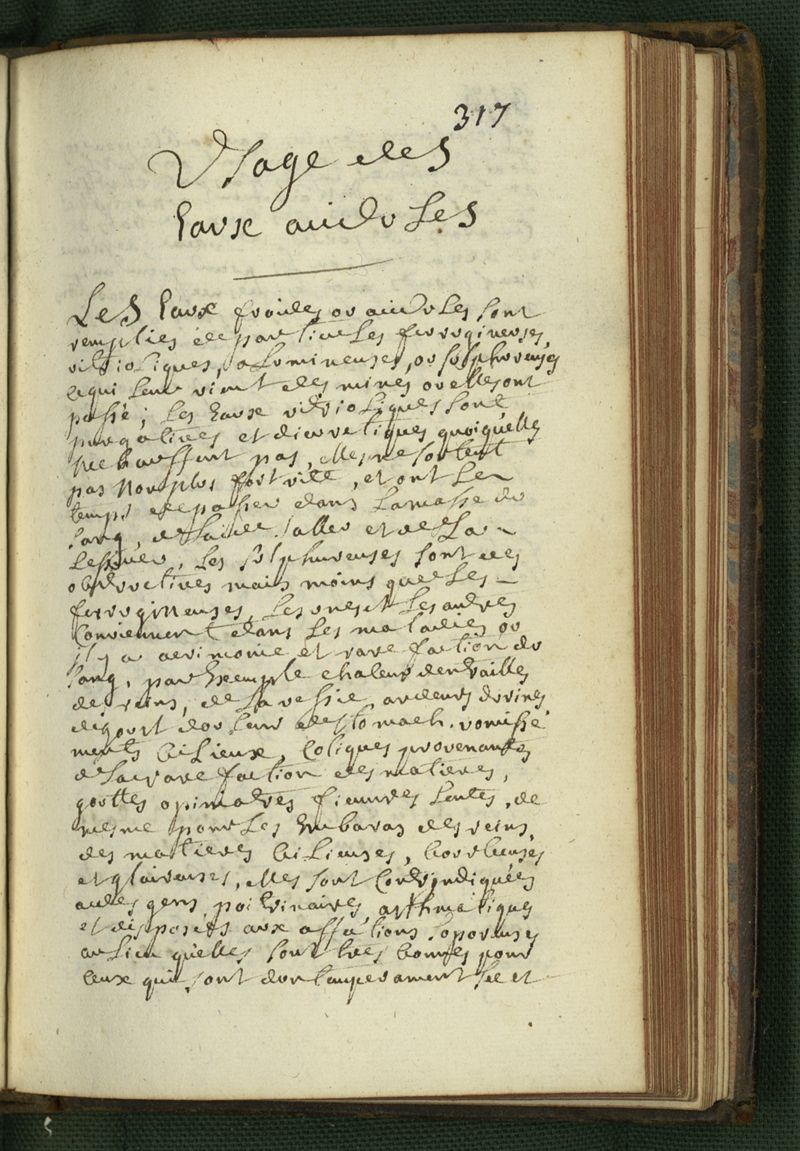 317
Usage des
Eaux aiidules
Les Eaux froides ou aiidules sont
remplies de particules ferrugineuses,
vitrioliques, alumineuses, ou sulphureuses
ce qui leur vient des mines ou elles ont
passé; Les Eaux vitrioliques sont
purgatives et diuretiques quoiquelles
n'echauffent pas, elles ne sortent
pas non plus fort vite, et ont Le
temps de passer dans La masse du
sang, de et de La
Les sulphureuses sont des
obstructives mais moins que Les
ferrugineuses, Les unes et Les autres
Conviennent dans Les maladies ou
il y a acrimonie et rarefaction du
sang, par Exemple chaleur dentrailles
de reins, de La vessie, ardeurs durines
degout douleur destomach, vomisse
ments bilieux, Coliques provenantes
de La rarefaction des matieres,
gouttes opimatres fieuvres Lentes, de
mesme pour Les Embaras des reins,
des matieres bilieuses, bourbeuses
et glaireuses, elles sont Contrindiquées
aux gens poitrinaires, asthmatiques
et disposés aux affections soporeuses
au Lieu quelles sont tres bonnes pour
ceux qui sont dun temperament sec et